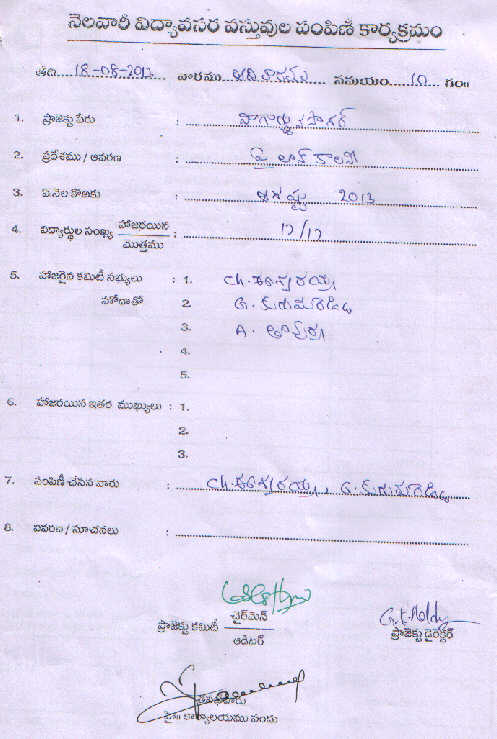 నెలవారీ విద్యావసర వస్తువుల పంపిణి కార్యక్రమం
తేది 18-08-2013 వారము ఆదివారము సమయం 10 గం॥
1. ప్రాజెక్టు పేరు : నాగార్జున సాగర్
2. ప్రదేశము / ఆవరణ : పైలాన్ కాలనీ
3. ఏ నెల కొఱకు : ఆగష్టు 2013
4. విద్యార్థుల సంఖ్య హాజరయిన / మొత్తము : 17/17
5. హాజరైన కమిటీ సభ్యులు : 1. Ch. ఈశ్వరయ్య
హోదాతో 2. G. కురుమారెడ్డి
3. A.
4.
5.
6. హాజరయిన ఇతర ముఖ్యులు : 1.
2.
3.
7. పంపిణీ చేసిన వారు : Ch. ఈశ్వరయ్య, G. కురుమారెడ్డి
8. వివరణ / సూచనలు :
ప్రాజెక్టు కమిటీ చైర్‌మెన్ / ఆడిటర్
G.K. Reddy
ప్రాజెక్టు డైరెక్టర్
కార్యాలయము నందు